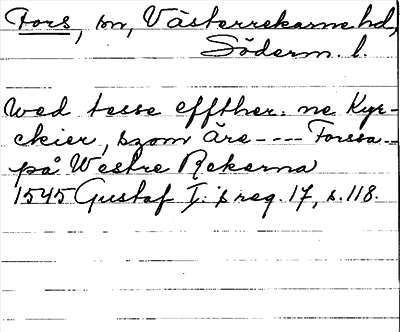 Fors, sn, Västerrekarne hd,
Söderm. l.
wed tesse effther: ne Kyr-
ckier, szom äre ---- Forssa
på Westre Rekarna
1545 Gustaf I:s reg. 17, s. 118.